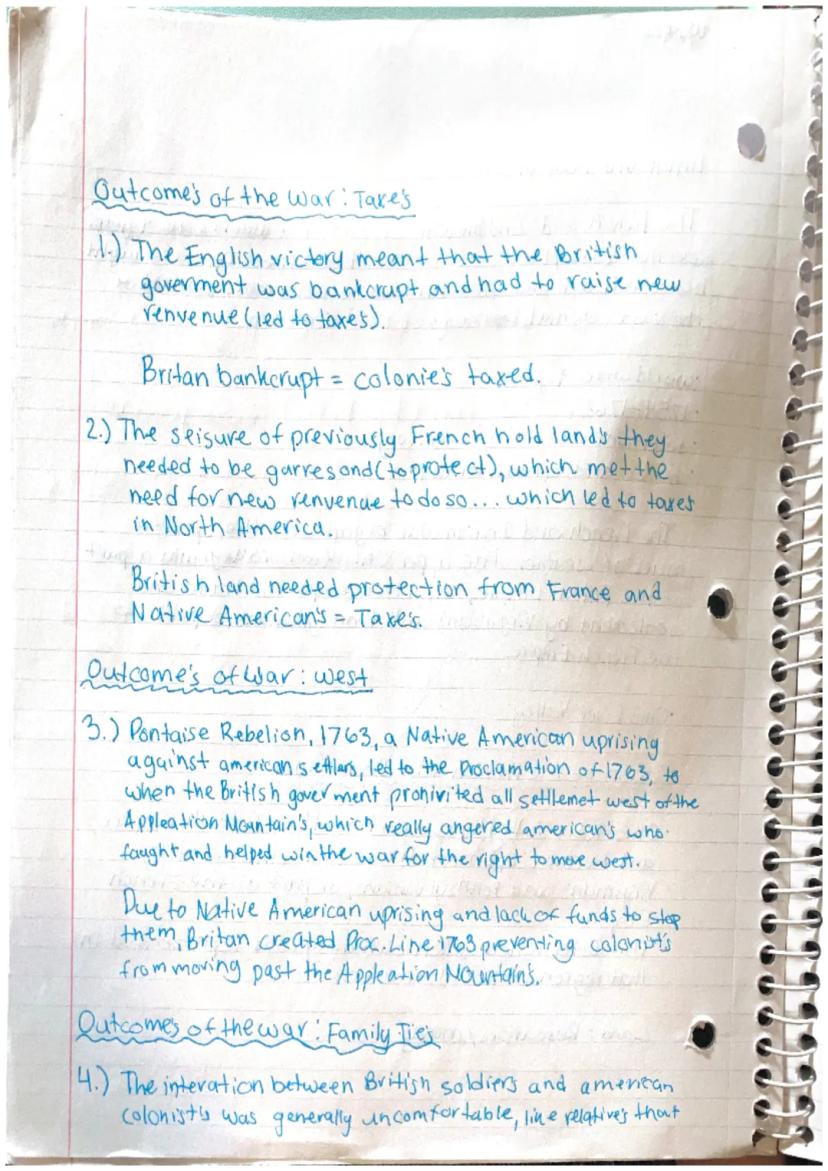 Outcome's of the war: Taxe's
1.) The English victory meant that the British
goverment was bankcrupt and had to raise new
renvenue (led to taxes).
Britan bankcrupt = colonie's taxed.
2.) The seisure of previously French hold land's they
needed to be garresond (to protect), which met the
need for new renvenue to do so... which led to taxes
in North America.
British land needed protection from France and
Native American's = Taxe's.
Outcome's of war: west
3.) Pontaise Rebelion, 1763, a Native American uprising
against american settlars, led to the Proclamation of 1763, to
when the British goverment prohivited all settlemet west of the
Appleation Mountain's, which really angered american's who
faught and helped win the war for the right to move west.
Due to Native American uprising and lack of funds to stop
them, Britan created Proc. Line 1763 preventing colonist's
from moving past the Appleation Mountain's.
Outcome's of the war: Family Tie's
4.) The interation between British soldiers and american
colonist's was generally uncomfortable, like relative's that